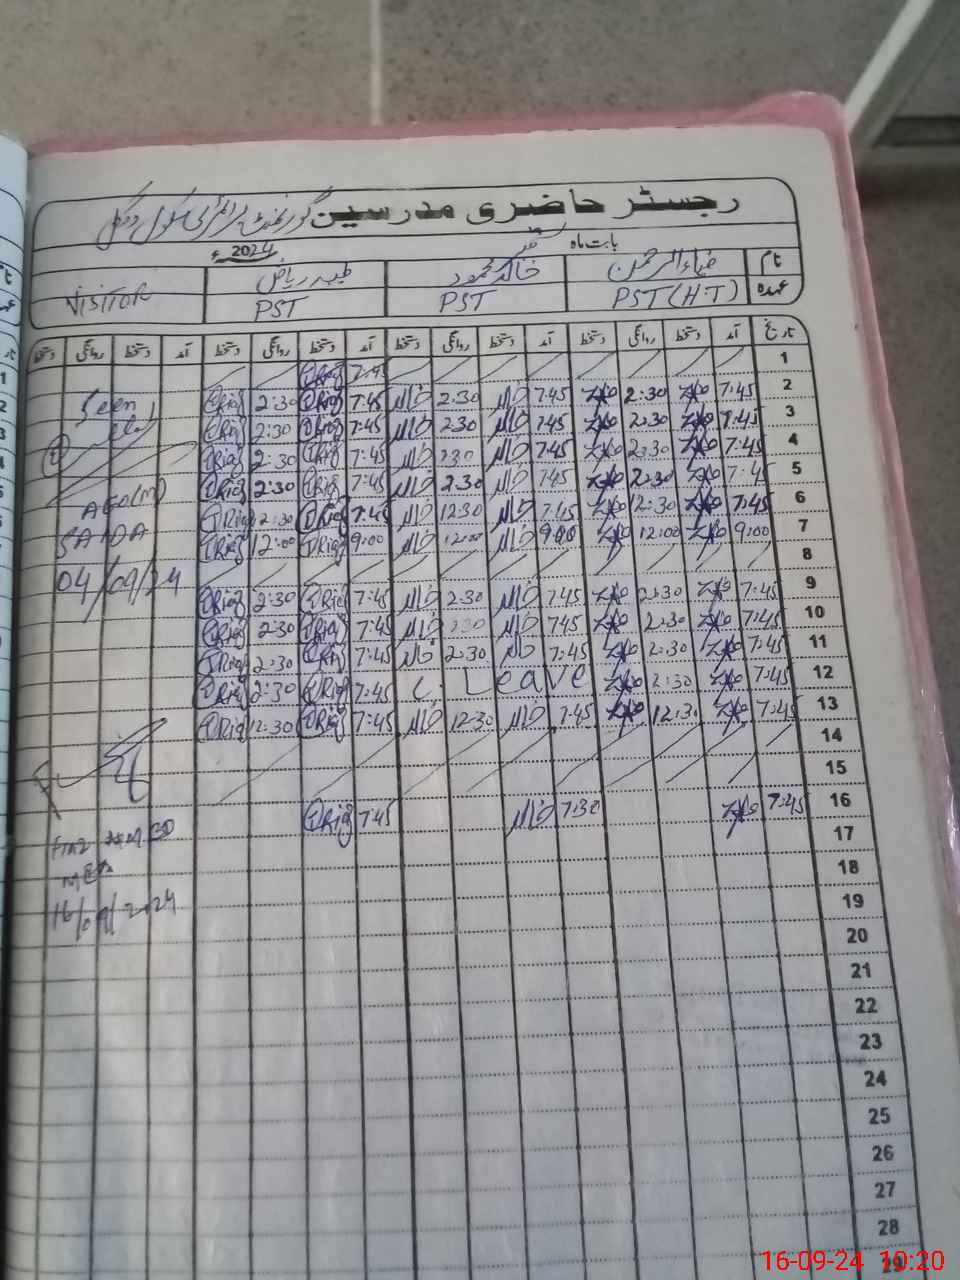 رجسٹر حاضری مدرسین گورنمنٹ پرائمری سکول
بابت ماہ ستمبر 2024ء
نام ضیاء الرحمن خالد محمود طیبہ ریاض
عہدہ PST(H.T) PST PST VISITOR
تاریخ آمد دستخط روانگی دستخط آمد دستخط روانگی دستخط آمد دستخط روانگی دستخط آمد دستخط روانگی دستخط
1 7:45
2 7:45 2:30 7:45 خالد 2:30 خالد 7:45 TRiaz 2:30 TRiaz Seen
3 7:45 2:30 7:45 خالد 2:30 خالد 7:45 TRiaz 2:30 TRiaz
4 7:45 2:30 7:45 خالد 2:30 خالد 7:45 TRiaz 2:30 TRiaz
5 7:45 2:30 7:45 خالد 2:30 خالد 7:45 TRiaz 2:30 TRiaz AEO(M)
6 7:45 12:30 7:45 خالد 12:30 خالد 7:45 TRiaz 12:30 TRiaz SAIDA
7 9:00 12:00 9:00 خالد 12:00 خالد 9:00 TRiaz 12:00 TRiaz
8 04/09/24
9 7:45 2:30 7:45 خالد 2:30 خالد 7:45 TRiaz 2:30 TRiaz
10 7:45 2:30 7:45 خالد 2:30 خالد 7:45 TRiaz 2:30 TRiaz
11 7:45 2:30 7:45 خالد 2:30 خالد 7:45 TRiaz 2:30 TRiaz
12 7:45 2:30 C. Leave 7:45 TRiaz 2:30 TRiaz
13 7:45 12:30 7:45 خالد 12:30 خالد 7:45 TRiaz 12:30 TRiaz
14
15
16 7:45 7:30 خالد 7:45 TRiaz
17
MEA
18
16/09/2024
19
20
21
22
23
24
25
26
27
28
29
16-09-24 10:20